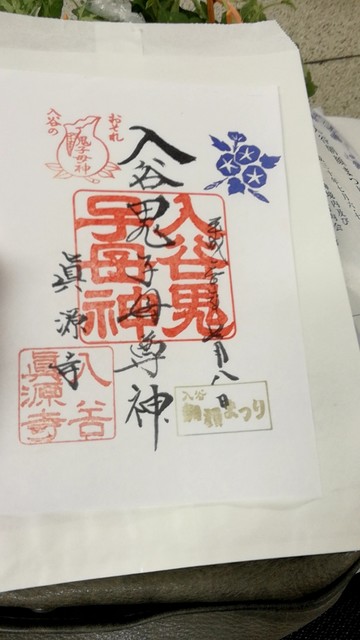 おそれ
入谷の
鬼子母神
入谷鬼子母尊神
入谷鬼
子母神
月八日
眞源寺
入谷
眞源寺
入谷
朝顔まつり